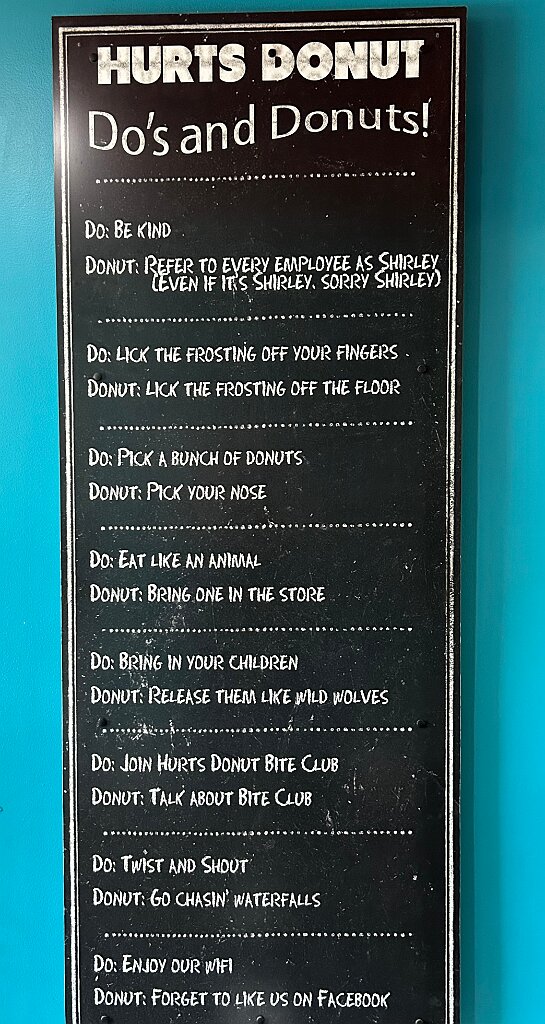 HURTS DONUT
Do's and Donuts!
Do: Be kind
Donut: Refer to every employee as Shirley
(Even if it's Shirley. Sorry Shirley)
Do: Lick the frosting off your fingers
Donut: Lick the frosting off the floor
Do: Pick a bunch of donuts
Donut: Pick your nose
Do: Eat like an animal
Donut: Bring one in the store
Do: Bring in your children
Donut: Release them like wild wolves
Do: Join Hurts Donut Bite Club
Donut: Talk about Bite Club
Do: Twist and Shout
Donut: Go chasin' waterfalls
Do: Enjoy our wifi
Donut: Forget to like us on Facebook